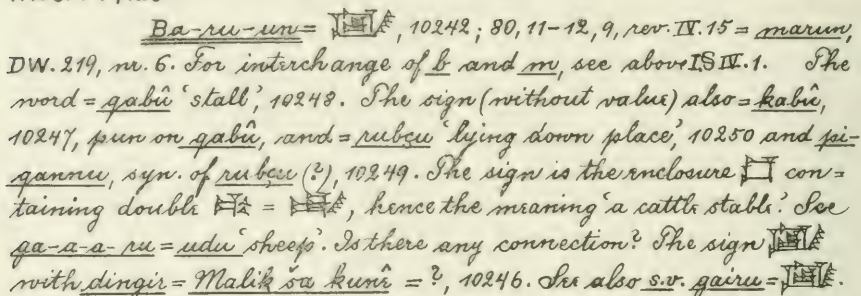 Ba-ru-un = , 10242; 80, 11-12, 9, rev. IV. 15 = marun,
DW. 219, nr. 6. For interchange of b and m, see above IS IV. 1. The
word = qabû ‘stall’, 10248. The sign (without value) also = kabû,
10247, pun on qabû, and = rubçu ‘lying down place’, 10250 and pi-
qannu, syn. of rubçu (?), 10249. The sign is the enclosure con=
taining double = , hence the meaning ‘a cattle stable’. See
ga-a-a-ru = udu ‘sheep’. Is there any connection? The sign
with dingir = Malik ša kunê = ?, 10246. See also s.v. gairu = .